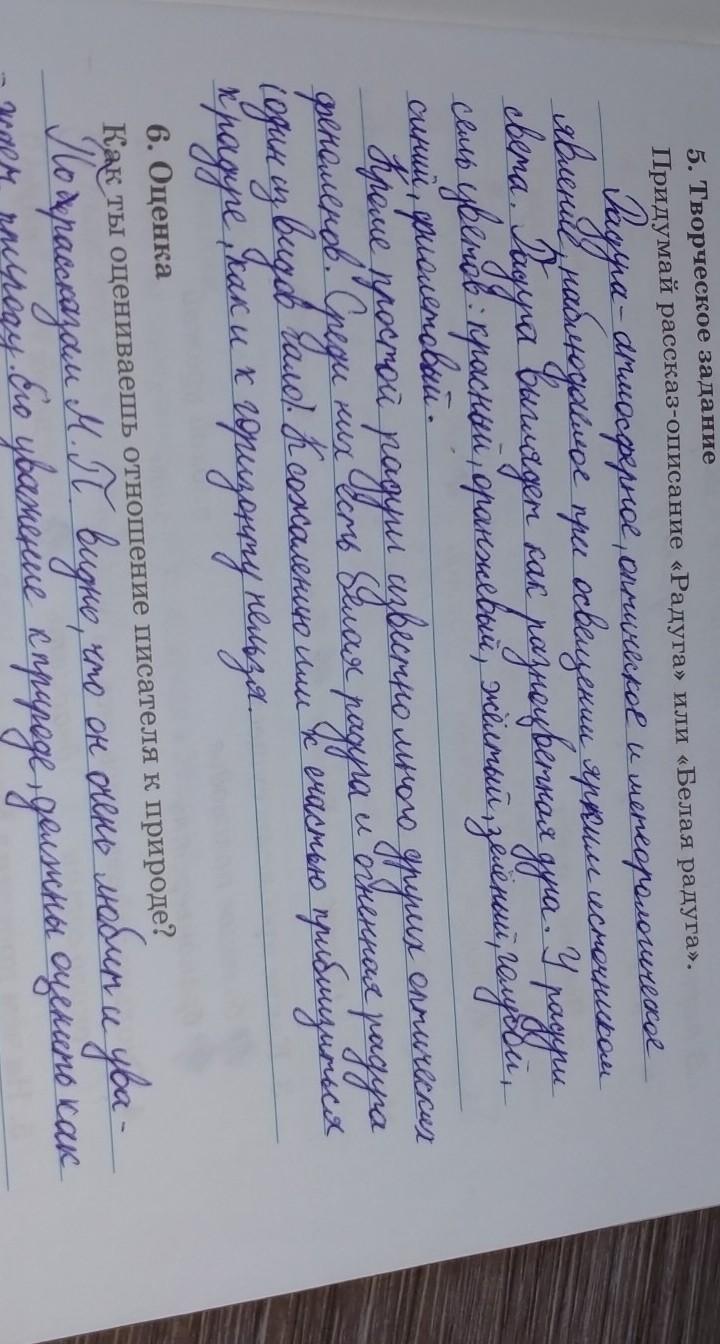 5. Творческое задание
Придумай рассказ-описание «Радуга» или «Белая радуга».
Радуга - атмосферное, оптическое и метеорологическое
явление, наблюдаемое при освещении ярким источником
света. Радуга выглядет как разноцветная дуга. У радуги
семь цветов: красный, оранжевый, жёлтый, зелёный, голубой,
синий, фиолетовый.
Кроме простой радуги известно много других оптических
феноменов. Среди них есть белая радуга и огненная радуга
(один из видов гало). К сожалению или к счастью приблизиться
к радуге, как и к горизонту нельзя.
6. Оценка
Как ты оцениваешь отношение писателя к природе?
По рассказам М. П видно, что он очень любит и ува-
жает природу. Его уважение к природе, должны оценить как